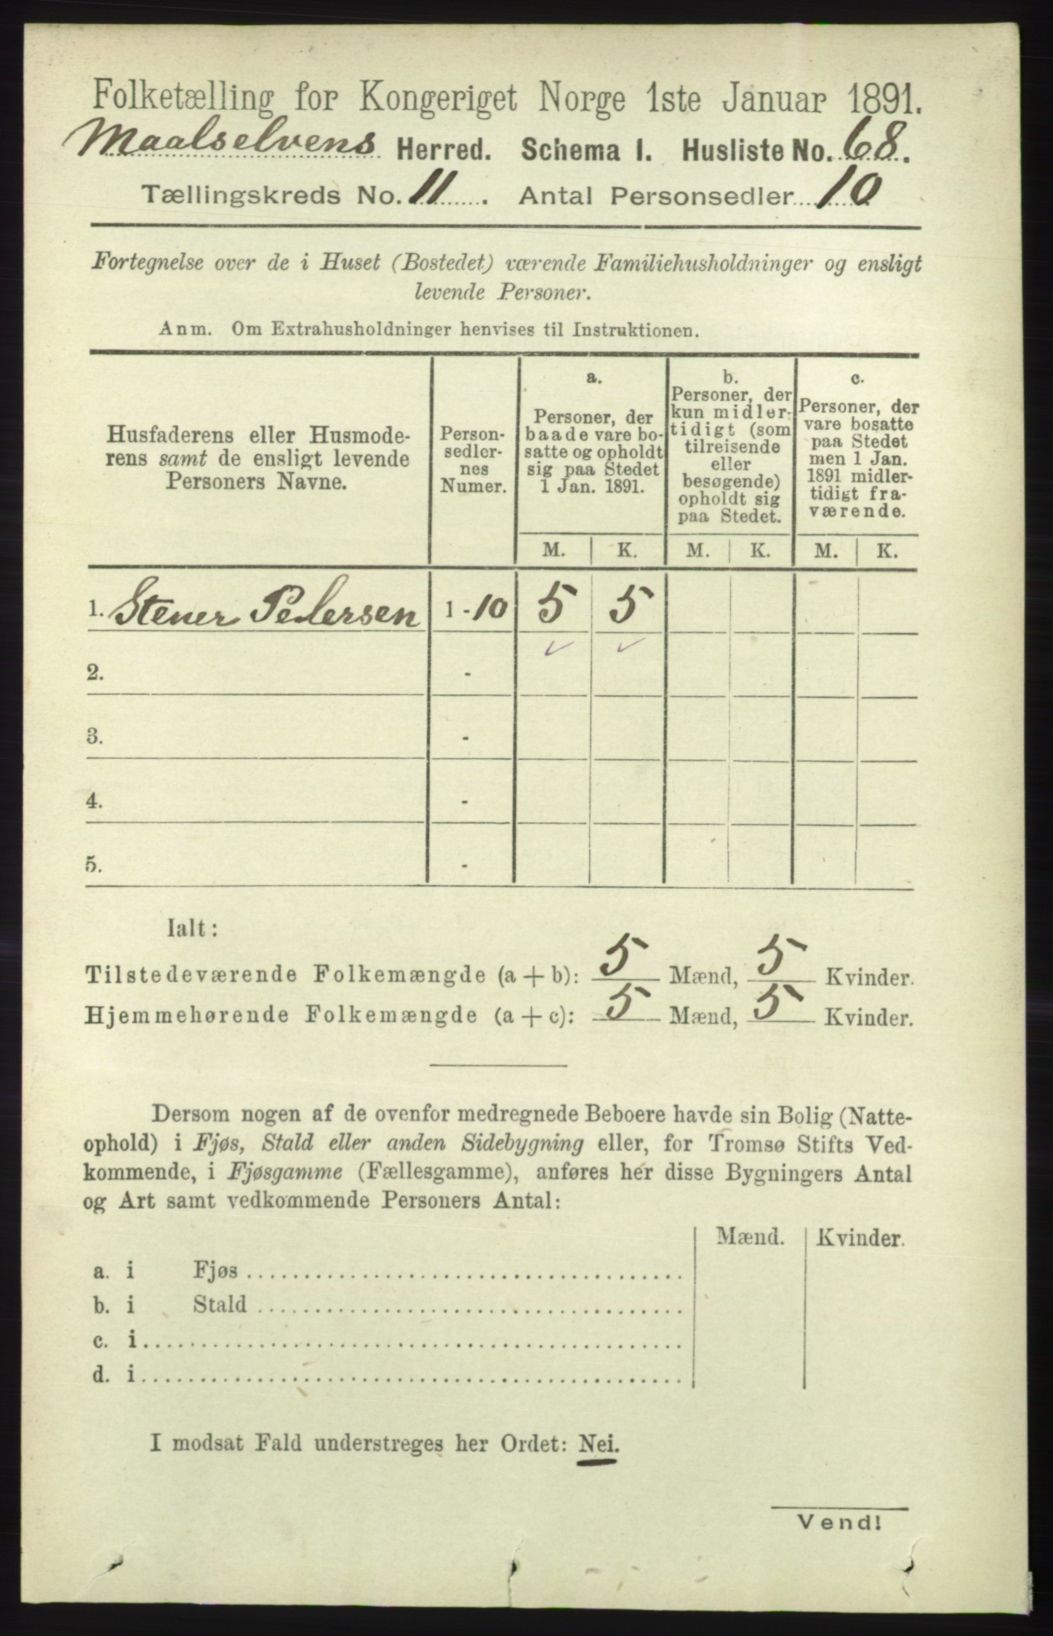 Folketælling for Kongeriget Norge 1ste Januar 1891.
Maalselvens Herred. Schema I. Husliste No. 68.
Tællingskreds No. 11. Antal Personsedler 10
Fortegnelse over de i Huset (Bostedet) værende Familiehusholdninger og ensligt
levende Personer.
Anm. Om Extrahusholdninger henvises til Instruktionen.
Husfaderens eller Husmode-
rens samt de ensligt levende
Personers Navne.
Person-
sedler-
nes
Numer.
a.
Personer, der
baade vare bo-
satte og opholdt
sig paa Stedet
1 Jan. 1891.
b.
Personer, der
kun midler-
tidigt (som
tilreisende
eller
besøgende)
opholdt sig
paa Stedet.
c.
Personer, der
vare bosatte
paa Stedet
men 1 Jan.
1891 midler-
tidigt fra-
værende.
M. K. M. K. M. K.
1. Stener Pedersen 1 - 10 5 5
2. -
3. -
4. -
5. -
Ialt:
Tilstedeværende Folkemængde (a + b): 5 Mænd, 5 Kvinder.
Hjemmehørende Folkemængde (a + c): 5 Mænd, 5 Kvinder.
Dersom nogen af de ovenfor medregnede Beboere havde sin Bolig (Natte-
ophold) i Fjøs, Stald eller anden Sidebygning eller, for Tromsø Stifts Ved-
kommende, i Fjøsgamme (Fællesgamme), anføres her disse Bygningers Antal
og Art samt vedkommende Personers Antal:
Mænd. Kvinder.
a. i Fjøs
b. i Stald
c. i
d. i
I modsat Fald understreges her Ordet: Nei.
Vend!